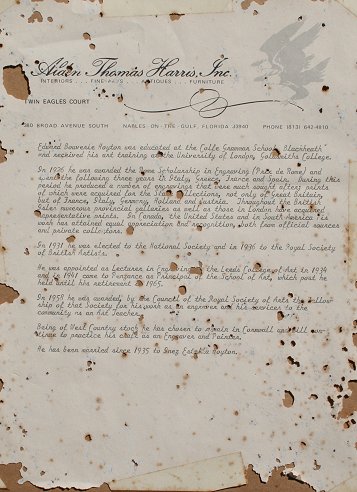 Alden Thomas Harris, Inc.
INTERIORS ... FINE ARTS ... ANTIQUES ... FURNITURE
TWIN EAGLES COURT
380 BROAD AVENUE SOUTH NAPLES-ON-THE-GULF, FLORIDA 33940 PHONE (813) 642-4810
Edward Bouverie Hoyton was educated at the Colfe Grammar School, Blackheath
and received his art training at the University of London, Goldsmiths College.
In 1926 he was awarded the Rome Scholarship in Engraving (Prix de Rome) and
spent the following three years in Italy, Greece, France and Spain. During this
period he produced a number of engravings that were much sought after, prints
of which were acquired for the State Collections, not only of Great Britain,
but of France, Italy, Germany, Holland and Austria. Throughout the British
Isles numerous provincial galleries as well as those in London have acquired
representative prints. In Canada, the United States and in South America his
work has attained equal appreciation and recognition, both from official sources
and private collectors.
In 1931 he was elected to the National Society and in 1936 to the Royal Society
of British Artists.
He was appointed as Lecturer in Engraving at the Leeds College of Art in 1934
and in 1941 came to Penzance as Principal of the School of Art, which post he
held until his retirement in 1965.
In 1958 he was awarded, by the Council of the Royal Society of Arts the Fellow-
ship of that Society for his work as an engraver and his services to the
community as an Art Teacher.
Being of West Country stock he has chosen to remain in Cornwall and still con-
tinue to practice his craft as an Engraver and Painter.
He has been married since 1935 to Inez Estella Hoyton.